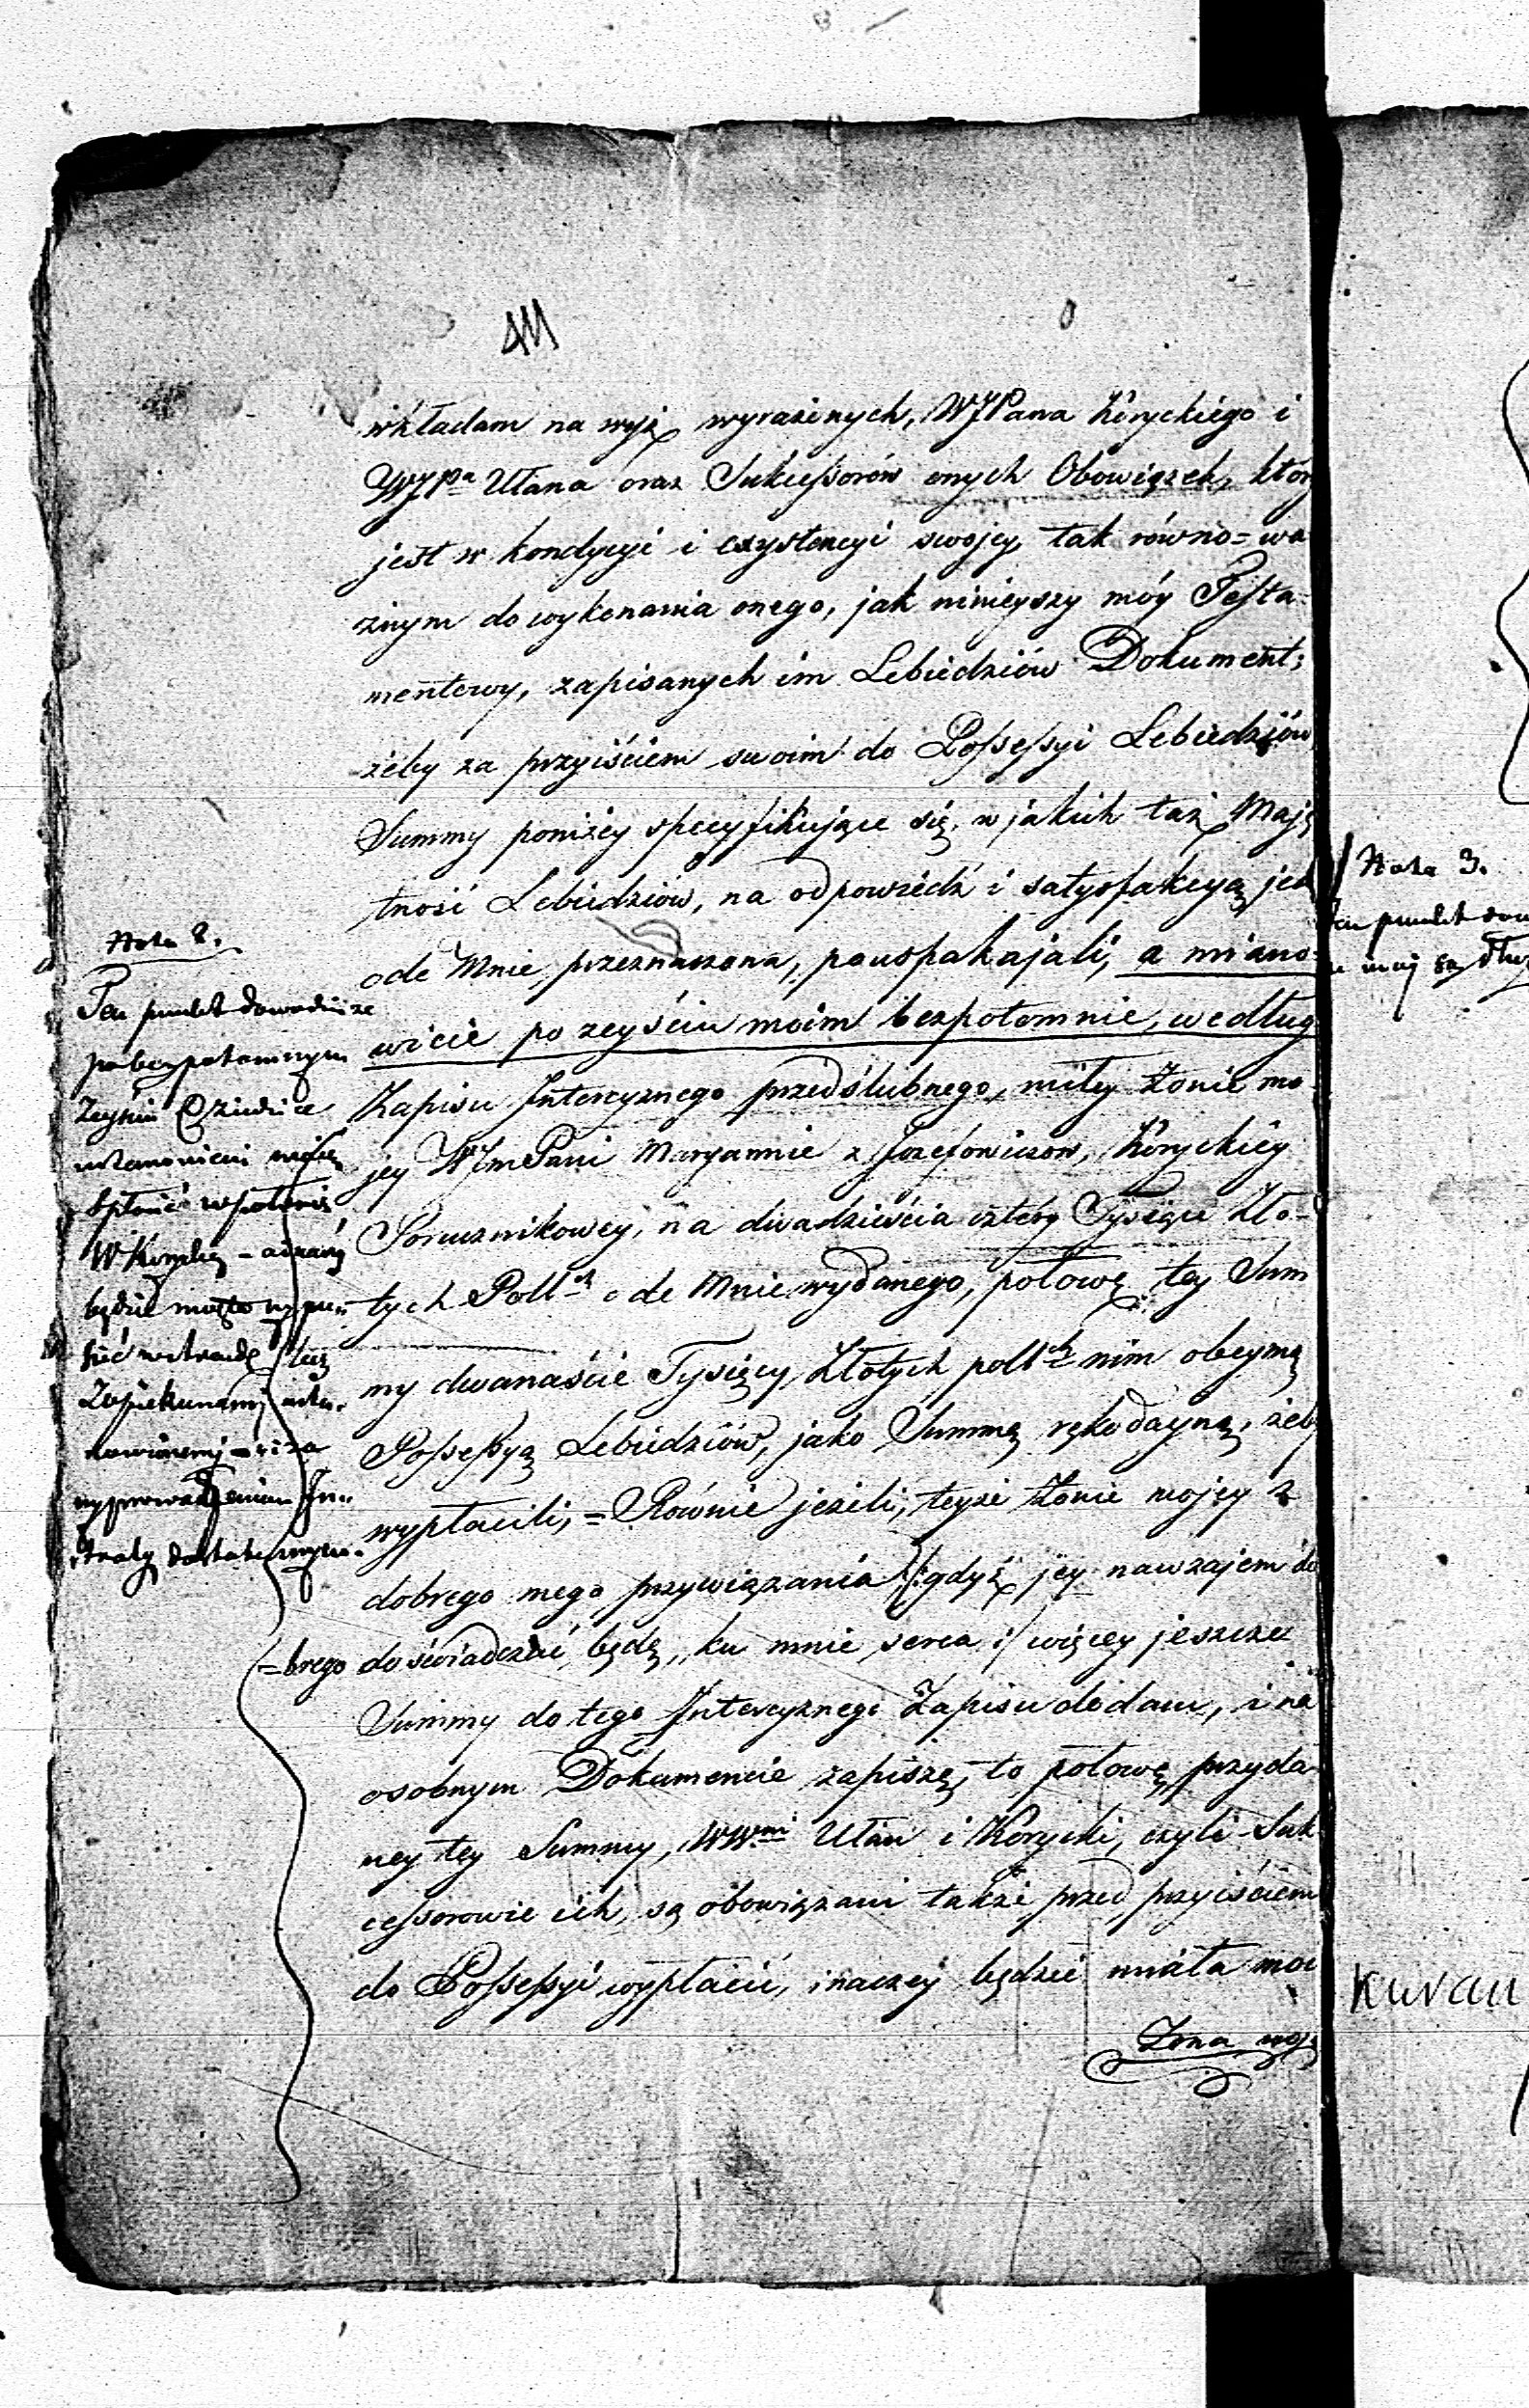 411
wkładam na wyż wyrażenych, WJPana Koryckiego i
WJPa Ułana oraz Sukcessorów onych Obowiązek, któr
jest w kondycyi i exystencyi swojey, tak równo=wa
żnym do wykonania onego, jak ninieyszy móy Testa=
mentowy, zapisanych im Lebiedziów Dokument;
żeby za przyiściem swoim do Possessyi Lebiedziów
Summy poniżey specyfikujące się, w jakich taż Maję
tność Lebiedziów, na odpowiedź i satysfakcyą jest
ode Mnie przeznaczona, pouspakajali, a miano=
wicie po zeyściu moim bezpotomnie, według
Zapisu Intercyznego przedślubnego, miłey Żonie mo=
jey WJmPani Maryannie z Jozefowiczow, Koryckiey
Porucznikowey, na dwadzieścia cztery Tysiące Zło=
tych Pollch ode Mnie wydanego, połowę tey Sum
my dwanaście Tysięcy Złotych pollch nim obeymą
Possessyą Lebiedziów, jako Summę rękodayną, żeb
wypłacili, = Równie jeżeli, teyże Żonie mojey z
dobrego mego przywiązania /: gdyż jey nawzajem do
=brego doświadczać będę, ku mnie serca :/ więcey jeszcze
Summy do tego Intercyznego Zapisu dodam, i na
osobnym Dokumencie zapiszę, to połowę przyda=
ney tey Summy, WWmi Ułan i Korycki, czyli Suk
cessorowie ich, są obowiązani także przed przyiściem
do Possessyi wypłacić, inaczej będzie miała moc
Żona moja
Nota 2.
Ten punkt dowodzi że
po bezpotomnym
Zeyściu Dziedzice
ustanowieni mają
spłacić
W Korycką
będzie
Nota 3.
Ten punkt